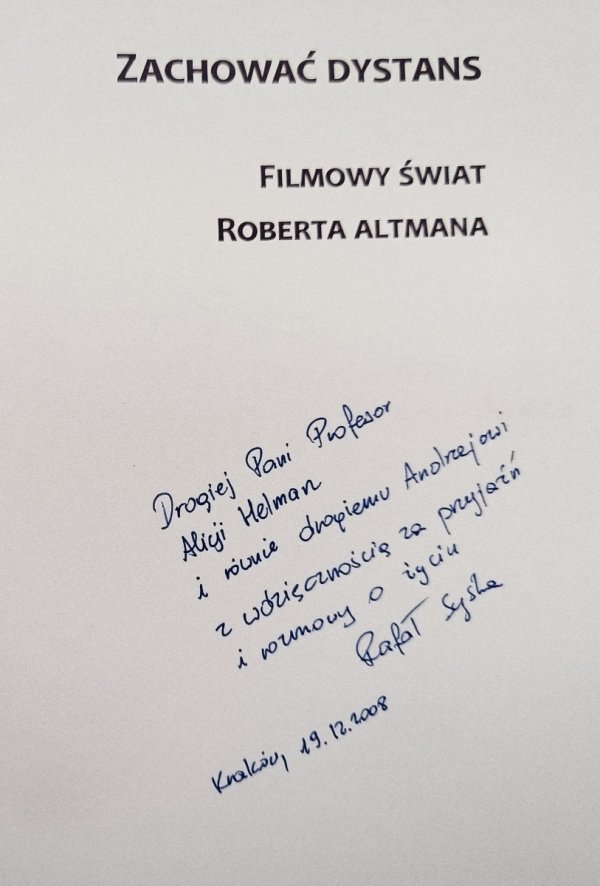 ZACHOWAĆ DYSTANS
FILMOWY ŚWIAT
ROBERTA ALTMANA
Drogiej Pani Profesor
Alicji Helman
i równie drogiemu Andrzejowi
z wdzięcznością za przyjaźń
i rozmowy o życiu
Rafał Syska
Kraków, 19.12.2008